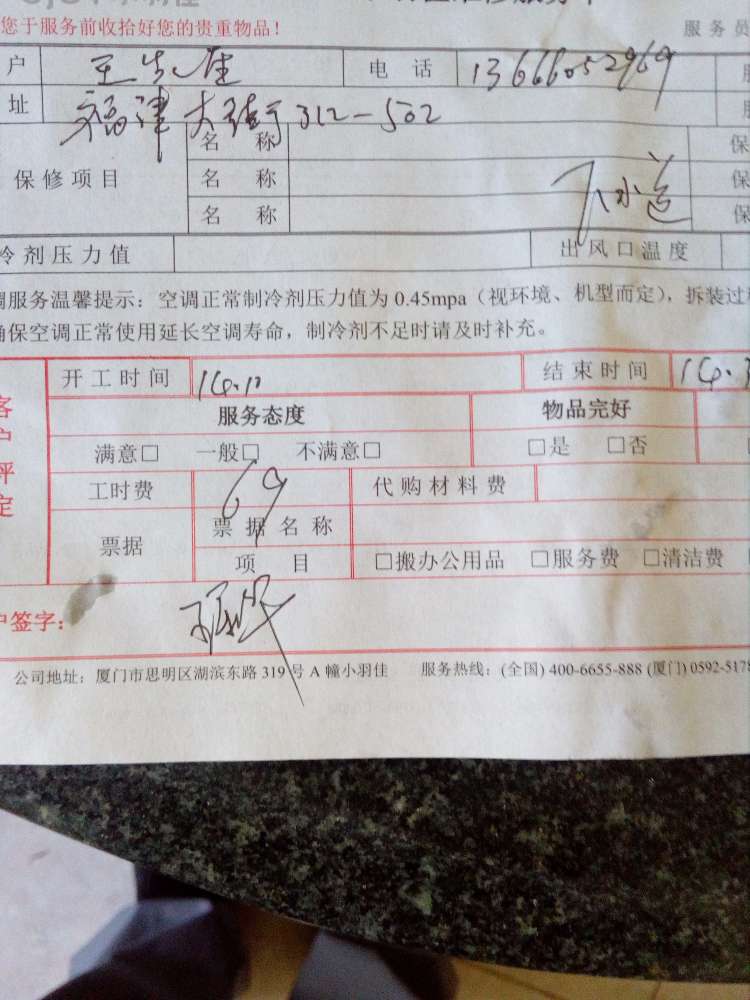 您于服务前收拾好您的贵重物品! 服务员
户 王先生 电话 13666052969
址 福津大街312-502
名称 保
保修项目 名称 下水道 保
名称 保
冷剂压力值 出风口温度
调服务温馨提示：空调正常制冷剂压力值为0.45mpa（视环境、机型而定），拆装过
确保空调正常使用延长空调寿命，制冷剂不足时请及时补充。
开工时间 14.10 结束时间 14.
客户评定
服务态度 物品完好
满意□ 一般□ 不满意□ □是 □否
工时费 69 代购材料费
票据 票据名称
项目 □搬办公用品 □服务费 □清洁费
户签字：
公司地址：厦门市思明区湖滨东路319号A幢小羽佳 服务热线：(全国) 400-6655-888 (厦门) 0592-5178